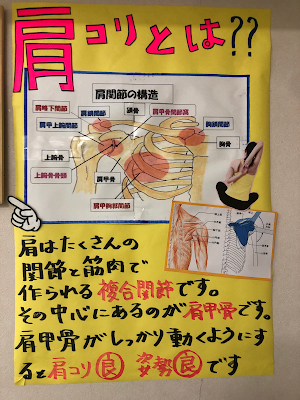 肩コリとは??
肩関節の構造
肩峰下関節
肩鎖関節
鎖骨
肩甲上腕関節
胸鎖関節
上腕骨
胸骨
上腕骨骨頭
肩甲骨
肩甲胸郭関節
肩はたくさんの
関節と筋肉で
作られる複合関節です。
その中心にあるのが肩甲骨です。
肩甲骨がしっかり動くようにす
ると肩コリ良 姿勢良です